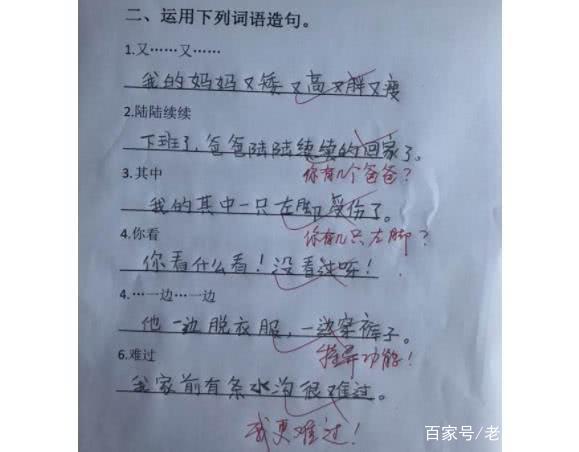 二、运用下列词语造句。
1.又……又……
我的妈妈又矮又高又胖又瘦
2.陆陆续续
下班了,爸爸陆陆续续的回家了。
你有几个爸爸?
3.其中
我的其中一只左脚受伤了。
你有几只左脚?
4.你看
你看什么看!没看过呀!
4.…一边…一边
他一边脱衣服,一边穿裤子。
特异功能!
6.难过
我家前有条水沟很难过。
我更难过!
百家号/老